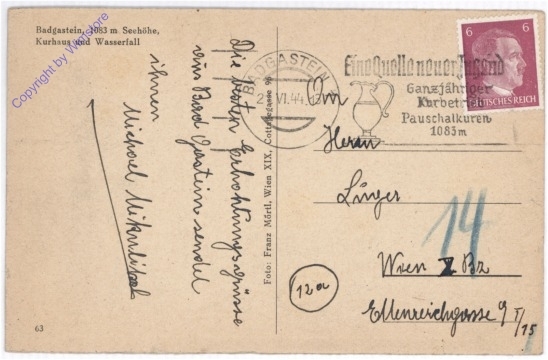 Badgastein, 1083 m Seehöhe,
Kurhaus und Wasserfall
Copyright by WStStore
Die besten Erholungsgrüsse
aus Bad Gastein sendet
ihnen
Michael
63
Foto: Franz Mörtl, Wien XIX, Cottagegasse 96
BADGASTEIN
VI.44
Eine Quelle neuer Jugend
Ganzjähriger
Kurbetrieb
Pauschalkuren
1083m
6 6
DEUTSCHES REICH
Herrn
Linger
14
Wien X Bz
12a
Ettenreichgasse 9 I/15